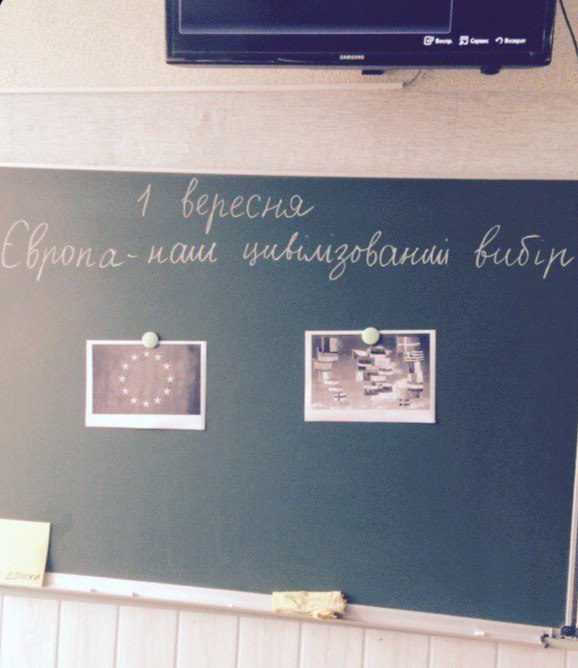 Воспр. Сервис Возврат
SAMSUNG
1 вересня
Європа - наш цивілізований вибір
дошки